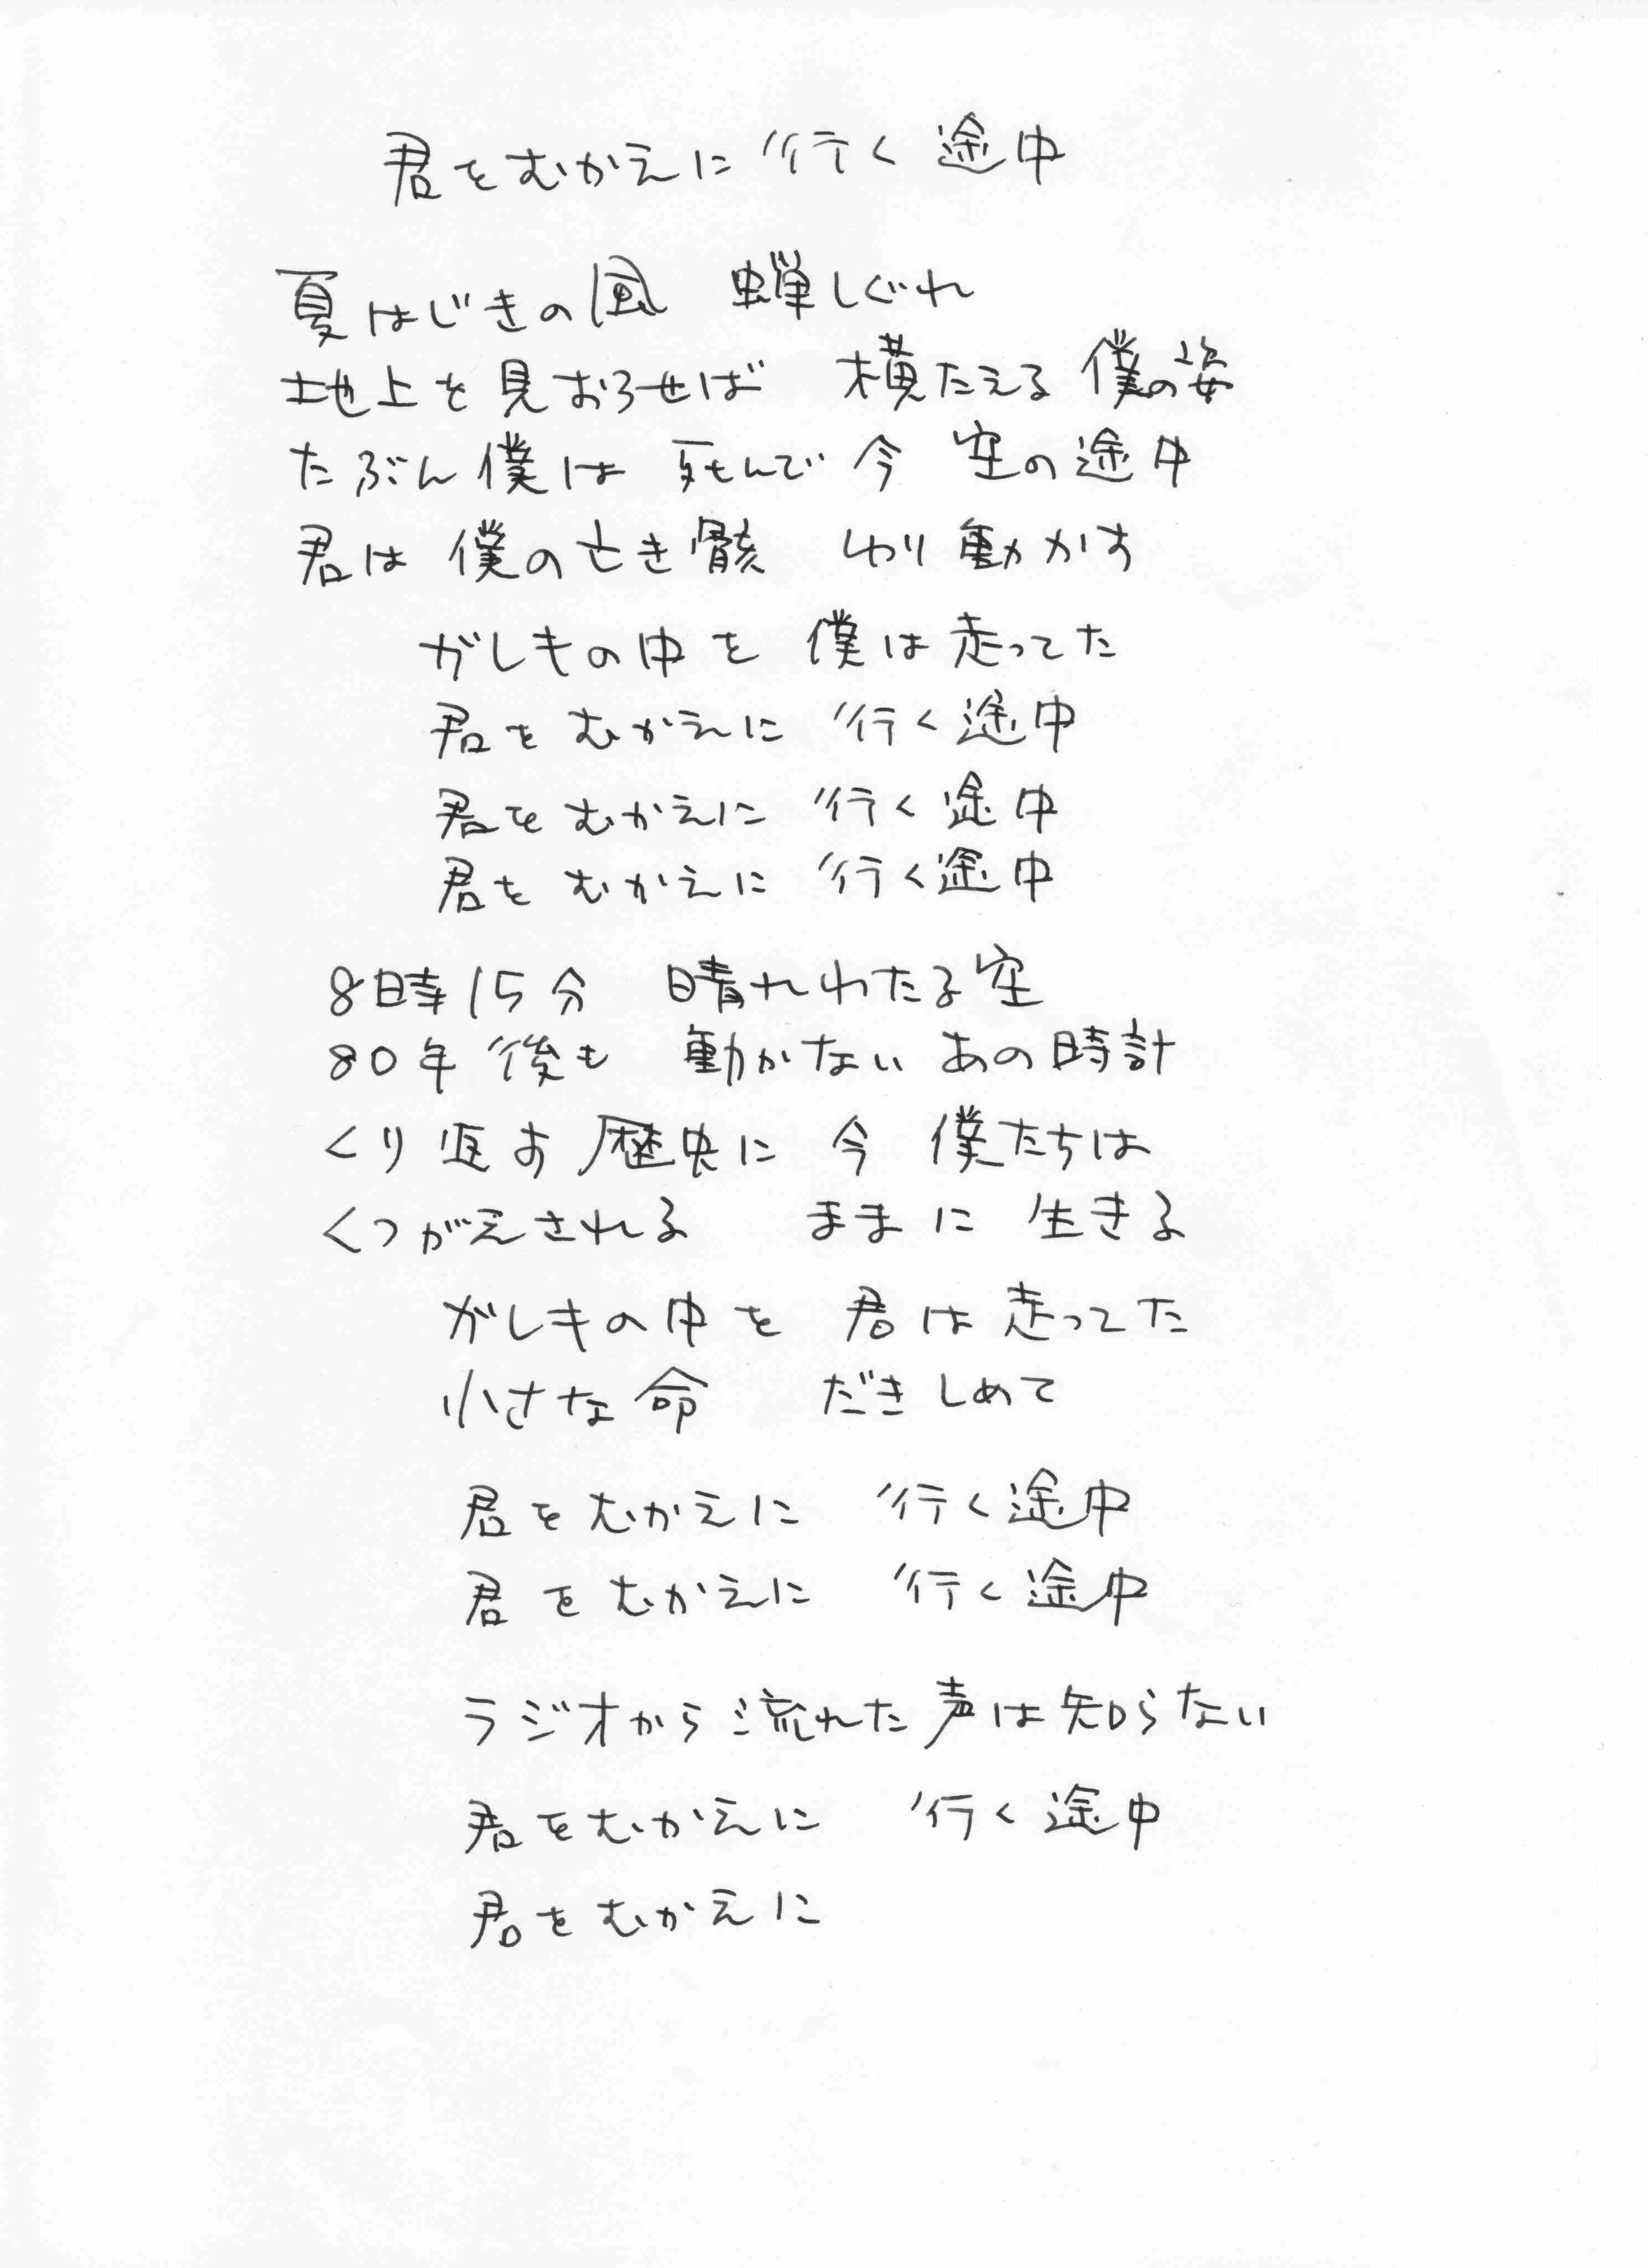 君をむかえに 行く 途中
夏はじきの風　蝉しぐれ
地上を見おろせば　横たえる 僕の姿
たぶん僕は 死んで 今 空の途中
君は 僕の亡き骸　ゆり動かす
がしきの中を 僕は走ってた
君を むかえに 行く途中
君を むかえに 行く途中
君を むかえに 行く途中
8時15分　晴れわたる空
80年後も　動かない あの時計
くり返す歴史に 今 僕たちは
くつがえされる　ままに 生きる
がしきの中を 君は走ってた
小さな命　だきしめて
君をむかえに 行く途中
君をむかえに 行く途中
ラジオから流れた声は知らない
君をむかえに 行く途中
君をむかえに